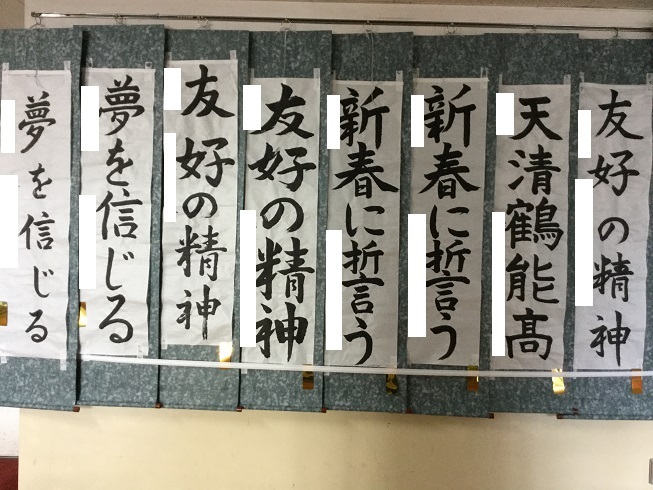 友好の精神
天清鶴能高
新春に誓う
新春に誓う
友好の精神
友好の精神
夢を信じる
夢を信じる